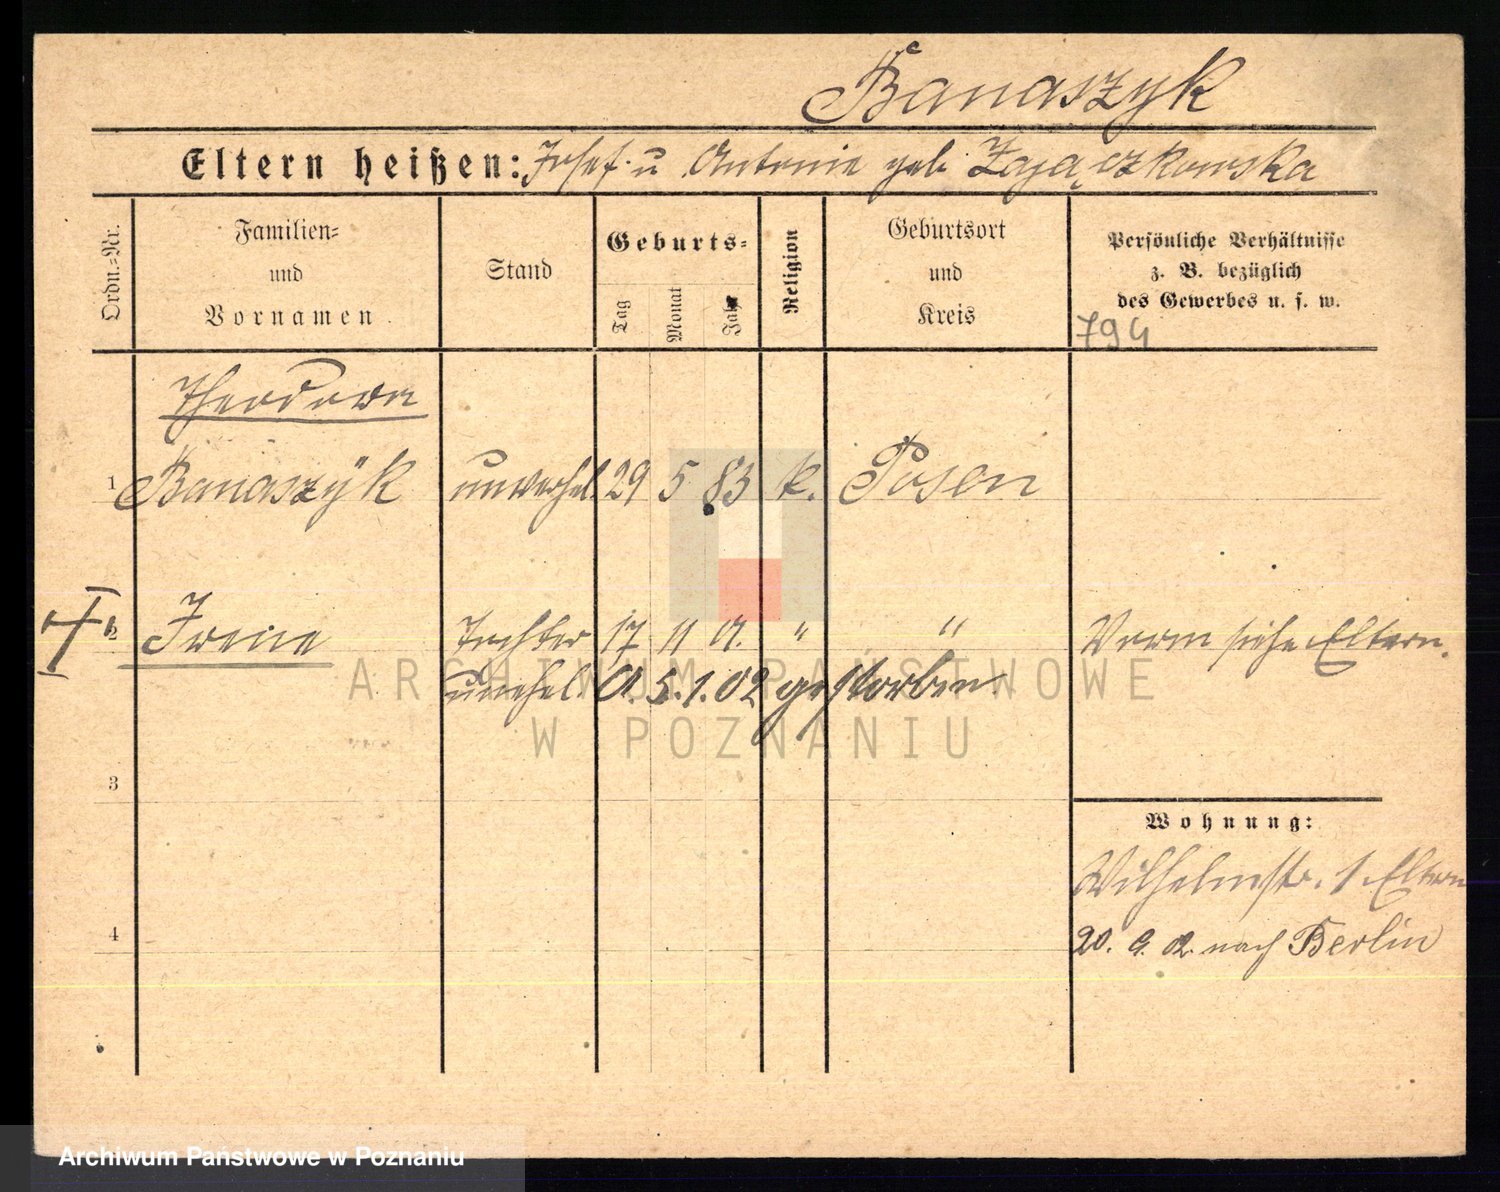 Banaszyk
Eltern heißen: Josef u Antonie geb Zającżkowska
Ordn.-Nr.
Familien-
und
Vornamen
Stand
Geburts-
Tag
Monat
Jahr
Religion
Geburtsort
und
Kreis
Persönliche Verhältnisse
z. B. bezüglich
des Gewerbes u. s. w.
794
Theodora
1 Banaszyk unverehel. 29 5 83 k. Posen
2 Irene Tochter 17 11 01. " " Verm siehe Eltern.
unehel. 5.1.02 gestorben.
ARCHIWUM PAŃSTWOWE
W POZNANIU
3
Wohnung:
Wilhelmstr. 1 Eltern
4
20. 9. 02. nach Berlin
Archiwum Państwowe w Poznaniu